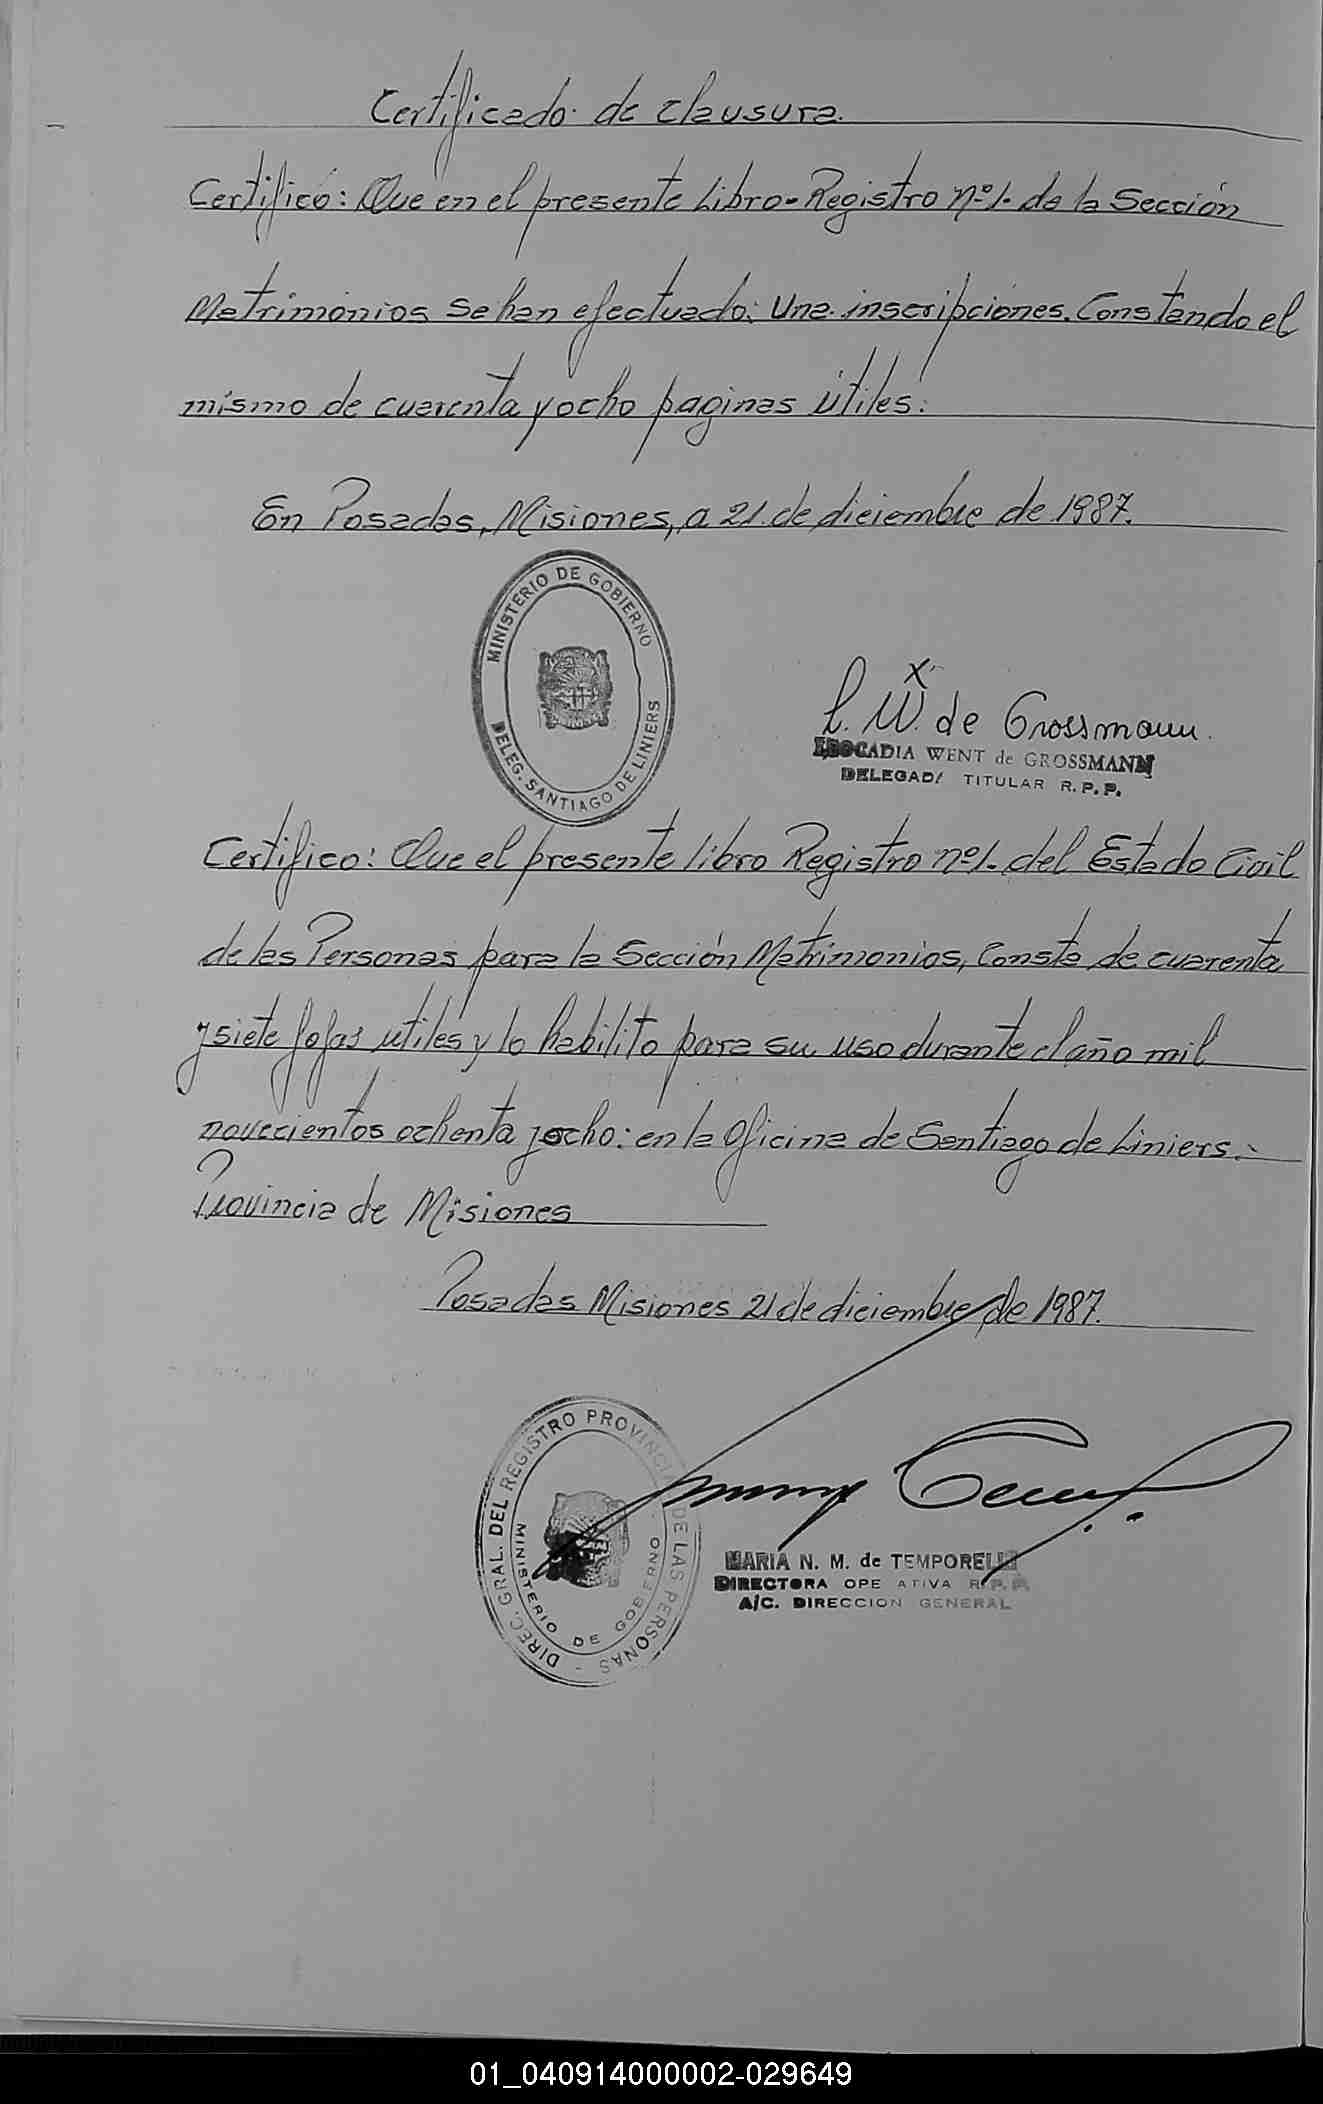 Certificado de clausura.
Certifico: Que en el presente Libro-Registro nº1. de la Sección
Matrimonios se han efectuado: Una inscripciones. Constando el
mismo de cuarenta y ocho paginas útiles:
En Posadas, Misiones, a 21 de diciembre de 1987.
MINISTERIO DE GOBIERNO
DELEG. SANTIAGO DE LINIERS
L. W. de Grossmann
LEOCADIA WENT de GROSSMANN
DELEGADA TITULAR R.P.P.
Certifico: Que el presente libro Registro nº1. del Estado Civil
de las Personas para la Sección Matrimonios, Consta de cuarenta
y siete fojas utiles y lo habilito para su uso durante el año mil
novecientos ochenta y ocho: en la Oficina de Santiago de Liniers.
Provincia de Misiones
Posadas Misiones 21 de diciembre de 1987.
DIREC. GRAL. DEL REGISTRO PROVINCIAL DE LAS PERSONAS -
MINISTERIO DE GOBIERNO
MARIA N. M. de TEMPORELLI
DIRECTORA OPERATIVA R.P.P.
A/C. DIRECCION GENERAL
01_040914000002-029649